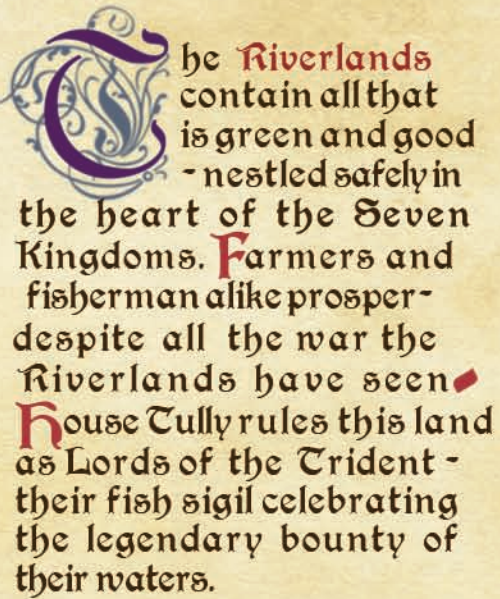 The Riverlands
contain all that
is green and good
- nestled safely in
the heart of the Seven
Kingdoms. Farmers and
fisherman alike prosper-
despite all the war the
Riverlands have seen
House Tully rules this land
as Lords of the Trident -
their fish sigil celebrating
the legendary bounty of
their waters.